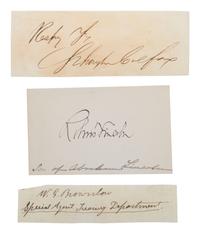 Resp. Y
Schuyler Colfax
Robert Lincoln
Son of Abraham Lincoln
W. G. Brownlow
Special Agent Treasury Department